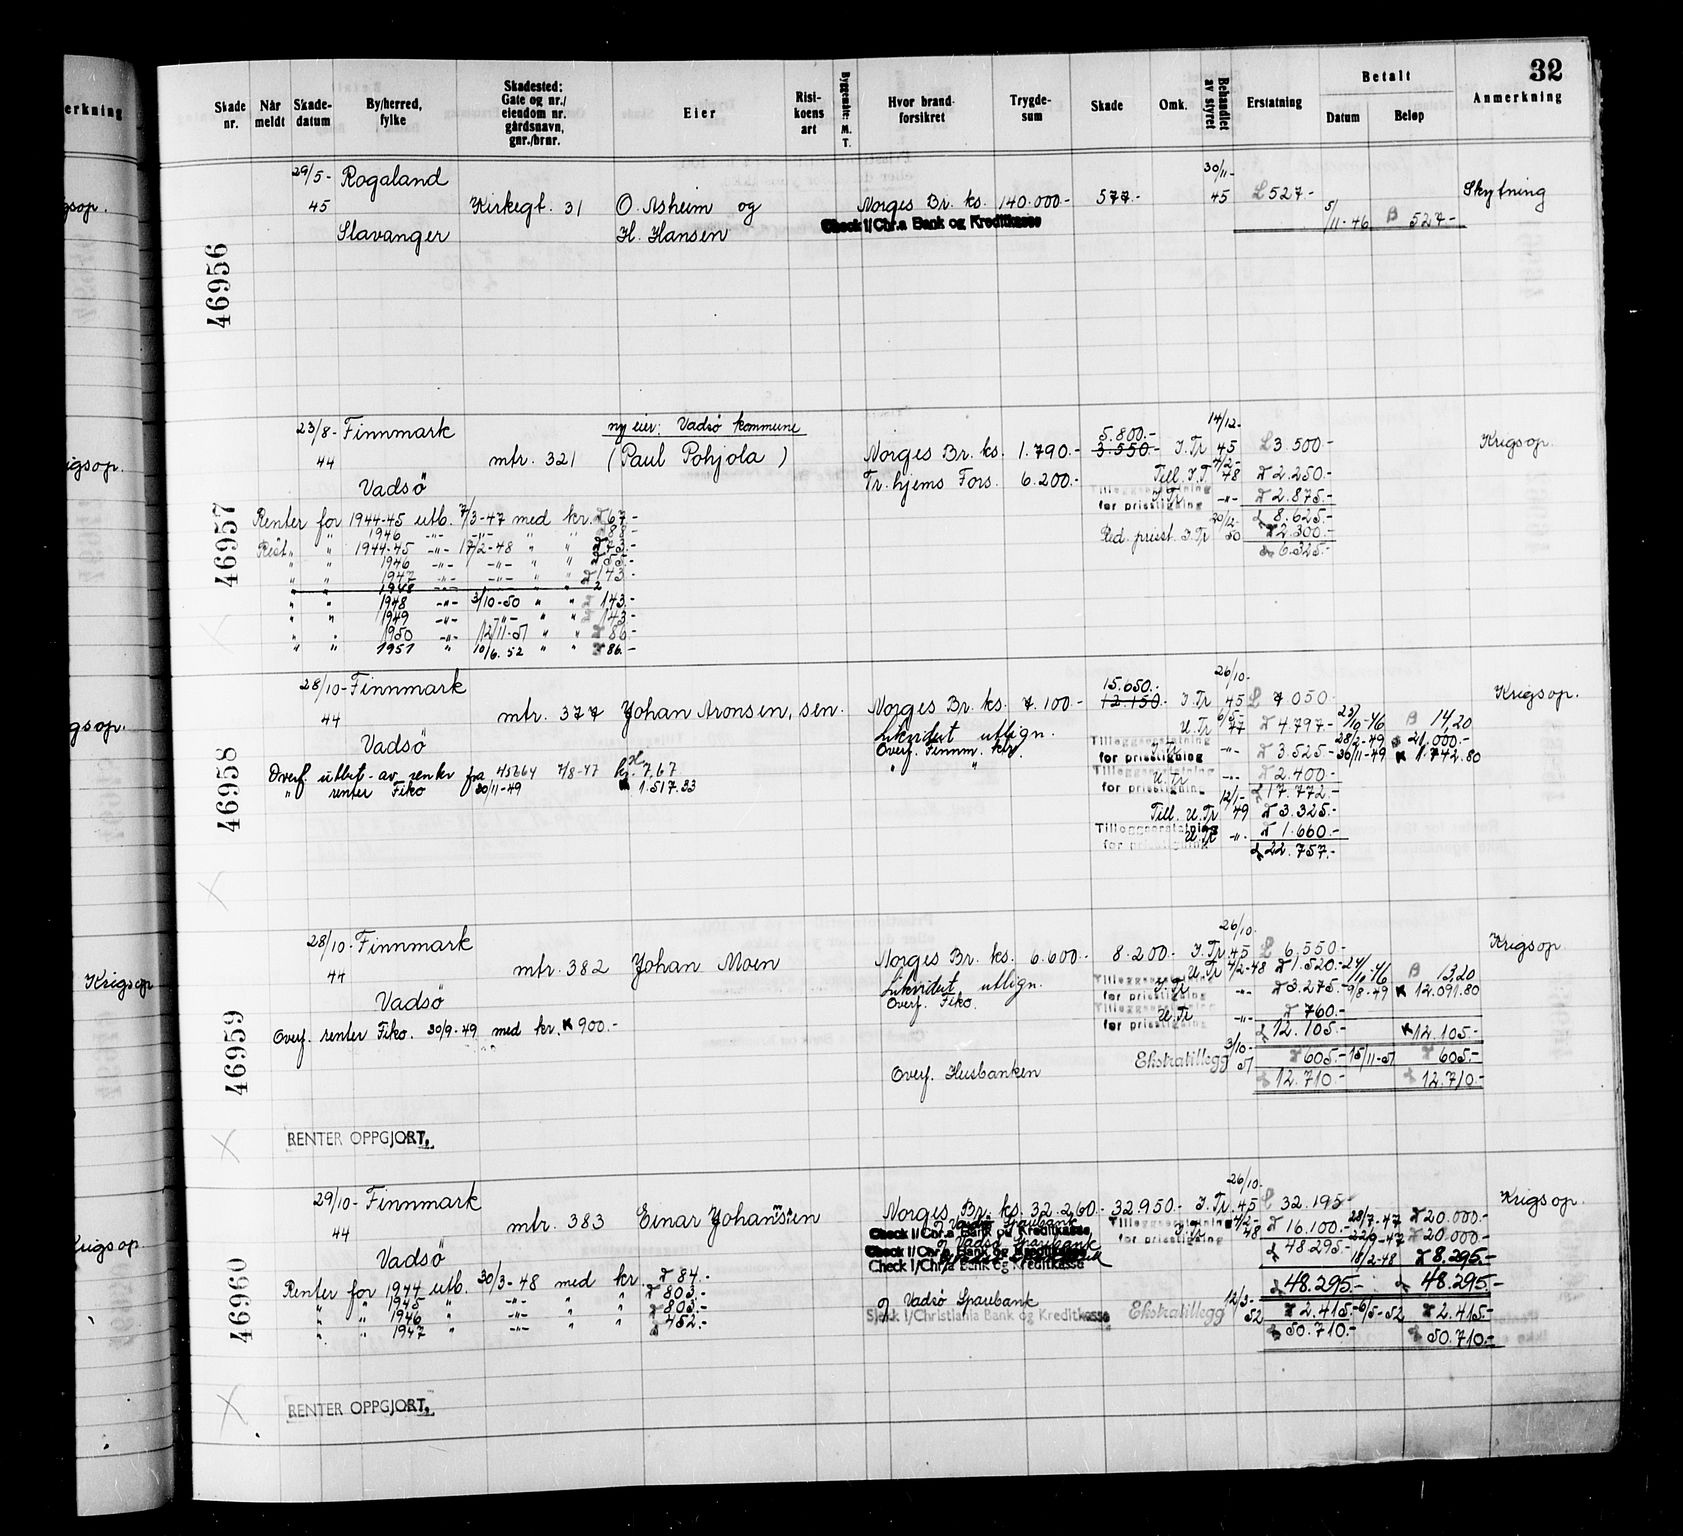 32
erkning
Skade nr.
Når meldt
Skade-datum
By/herred, fylke
Skadested: Gate og nr./ eiendom nr. gårdsnavn, gnr./brnr.
Eier
Risi-koens art
Byggemåte: M. T.
Hvor brand-forsikret
Trygde-sum
Skade
Omk.
Behandlet av styret
Erstatning
Betalt
Datum
Beløp
Anmerkning
46956
29/5- Rogaland 30/11- Skytning
45 Kirkegt. 31 O. Asheim og Norges Br. ks. 140.000.- 577.- 45 £ 527.-
Stavanger H. Hansen Check i/Chr.a Bank og Kreditkasse 5/11-46 B 527.-
46957
23/8- Finnmark ny eier: Vadsö kommune 5.800.- 14/12-
44 mtr. 321 (Paul Pohjola) Norges Br. ks. 1.790.- 3.550.- I.Tr 45 £ 3.500.- Krigsop.
Vadsö Tr.hjems Fors. 6.200.- Till. I.T 7/2-48 2.250.-
Tilleggserstatning for prisstigning I.Tr -"- 2.875.-
8.625.-
Red. prisst. I.Tr 20/12-50 2.300.-
6.325.-
Renter for 1944-45 utb. 7/3-47 med kr. 67.-
" " 1946 -"- -"- " "
Rest " " 1944-45 -"- 17/2-48 " "
" " 1946 -"- -"- " "
" " 1947 -"- -"- " " 143.-
" " 1948 -"-
" " 1948 -"- 3/10-50 " " 143.-
" " 1949 -"- -"- " " 143.-
" " 1950 -"- 12/11-51 " " 86.-
" " 1951 " 10/6.52 " " 86.-
46958
28/10- Finnmark 15.650.- 26/10-
44 mtr. 377 Johan Aronsen, sen. Norges Br. ks. 7.100.- 12.150.- I.Tr 45 £ 7.050.- Krigsop.
Vadsö Likvidert utlign. U.Tr 6/5-47 4.797.- 23/10-46 B 14,20
Overf. Finnm. ktr. 28/2-49 21.000.-
Tilleggserstatning for prisstigning I.Tr -"- 3.525.- 30/11-49 K 1.742.80
Tilleggserstatning for prisstigning U.Tr -"- 2.400.-
17.772.-
Overf. utbet. av renter fra 45264 7/8-47 kr. 767
" renter Fiko 30/11-49 K 1.517.33
Till. U.Tr 12/1-49 3.325.-
Tilleggserstatning for prisstigning U.Tr -"- 1.660.-
22.757.-
46959
28/10- Finnmark 26/10-
44 mtr. 382 Johan Moen Norges Br. ks. 6.600.- 8.200.- I.Tr 45 £ 6.550.- Krigsop.
Vadsö Likvidert utlign. U.Tr 4/2-48 1.520.- 24/10-46 B 13,20
Overf. Fiko. Tilleggserstatning for prisstigning I.Tr -"- 3.275.- 9/8-49 K 12.091.80
Tilleggserstatning for prisstigning U.Tr -"- 760.-
12.105.- K 12.105.-
Overf. renter Fiko. 30/9-49 med kr. K 900.-
Overf. Husbanken Ekstratillegg 3/10-51 605.- 15/11-51 605.-
12.710.- 12.710.-
RENTER OPPGJORT.
46960
29/10- Finnmark 26/10-
44 mtr. 383 Einar Johanssen Norges Br. ks. 32.260.- 32.950.- I.Tr. 45 £ 32.195.- Krigsop.
Vadsö Vadsö Sparebank Tilleggserstatning for prisstigning I.Tr 7/2-48 16.100.- 28/7-47 20.000.-
Check i/Chr.a Bank og Kreditkasse, 48.295.- 22/9-47 20.000.-
Vadsö Sparebank 18/2-48 8.295.-
Check i/Chr.a Bank og Kreditkasse 48.295.- 48.295.-
Check i/Chr/a Bank og Kreditkasse
Renter for 1944 utb. 30/3-48 med kr. 84.-
" " 1945 " -"- " " 803.-
" " 1946 " -"- " " 803.-
" " 1947 " -"- " " 452.-
Vadsö Sparebank
Sjekk i/Christiania Bank og Kreditkasse Ekstratillegg 12/3-52 2.415.- 6/5-52 2.415.-
50.710.- 50.710.-
RENTER OPPGJORT.
gsop.
igsop.
gsop.
Krigsop
Krigsop.